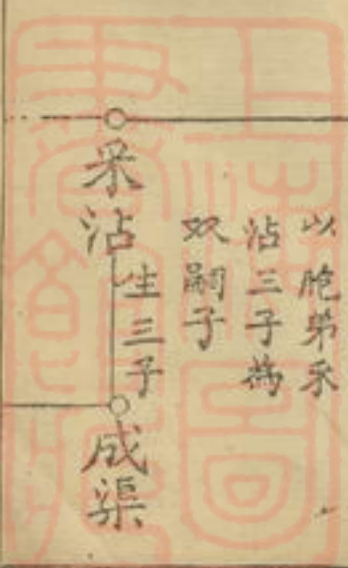 以胞弟承
沾三子為
双嗣子
承沾
生三子
成渠